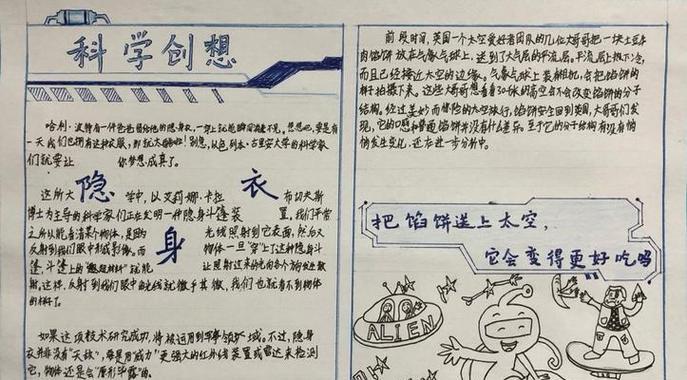 科学创想
哈利·波特有一件爸爸留给他的隐身衣,一穿上就能瞬间消失不见。想想吧,要是有
一天我们也拥有这种衣服,那就太酷啦!别急,以色列本·古里安大学的科学家
们就要让 你梦想成真了。
隐
身
衣
这所大 学中,以艾莉娜·卡拉 布切夫斯
博士为主导的科学家们正在发明一种隐身斗篷装 置。我们平常
之所以能看清某个物体,是因 光线照射到它表面,然后又
反射到我们眼中形成影像。而 物体一旦“穿上”了这种隐身斗
篷,斗篷上的“超材料”就能 让照射过来的光向各个方向发生散
射,这样,反射到我们眼中的光线就微乎其微,我们也就看不到物体
的样子了。
如果这项技术研究成功,将被运用到军事领域。不过,隐身
衣并非没有“天敌”,每是用“威力”更强大的红外线装置或雷达来检测
它,物体还是会“原形毕露”的。
前段时间,英国一个太空爱好者团队的几位大哥哥把一块土豆牛
肉馅饼放在气象气球上,送到了大气层的平流层。平流层上热下冷,
而且已经接近太空的边缘。气象气球上装有相机,会把馅饼的
样子拍摄下来。这些大哥哥想看看30千米的高空会不会改变馅饼的分子
结构。经过美妙而惊险的太空旅行,馅饼安全回到英国,大哥哥们发
现,它的口感和普通馅饼并没有什么差乐。至于它的分子结构有没有悄
悄发生变化,还在进一步分析中。
把馅饼送上太空,
它会变得更好吃吗
ALIEN